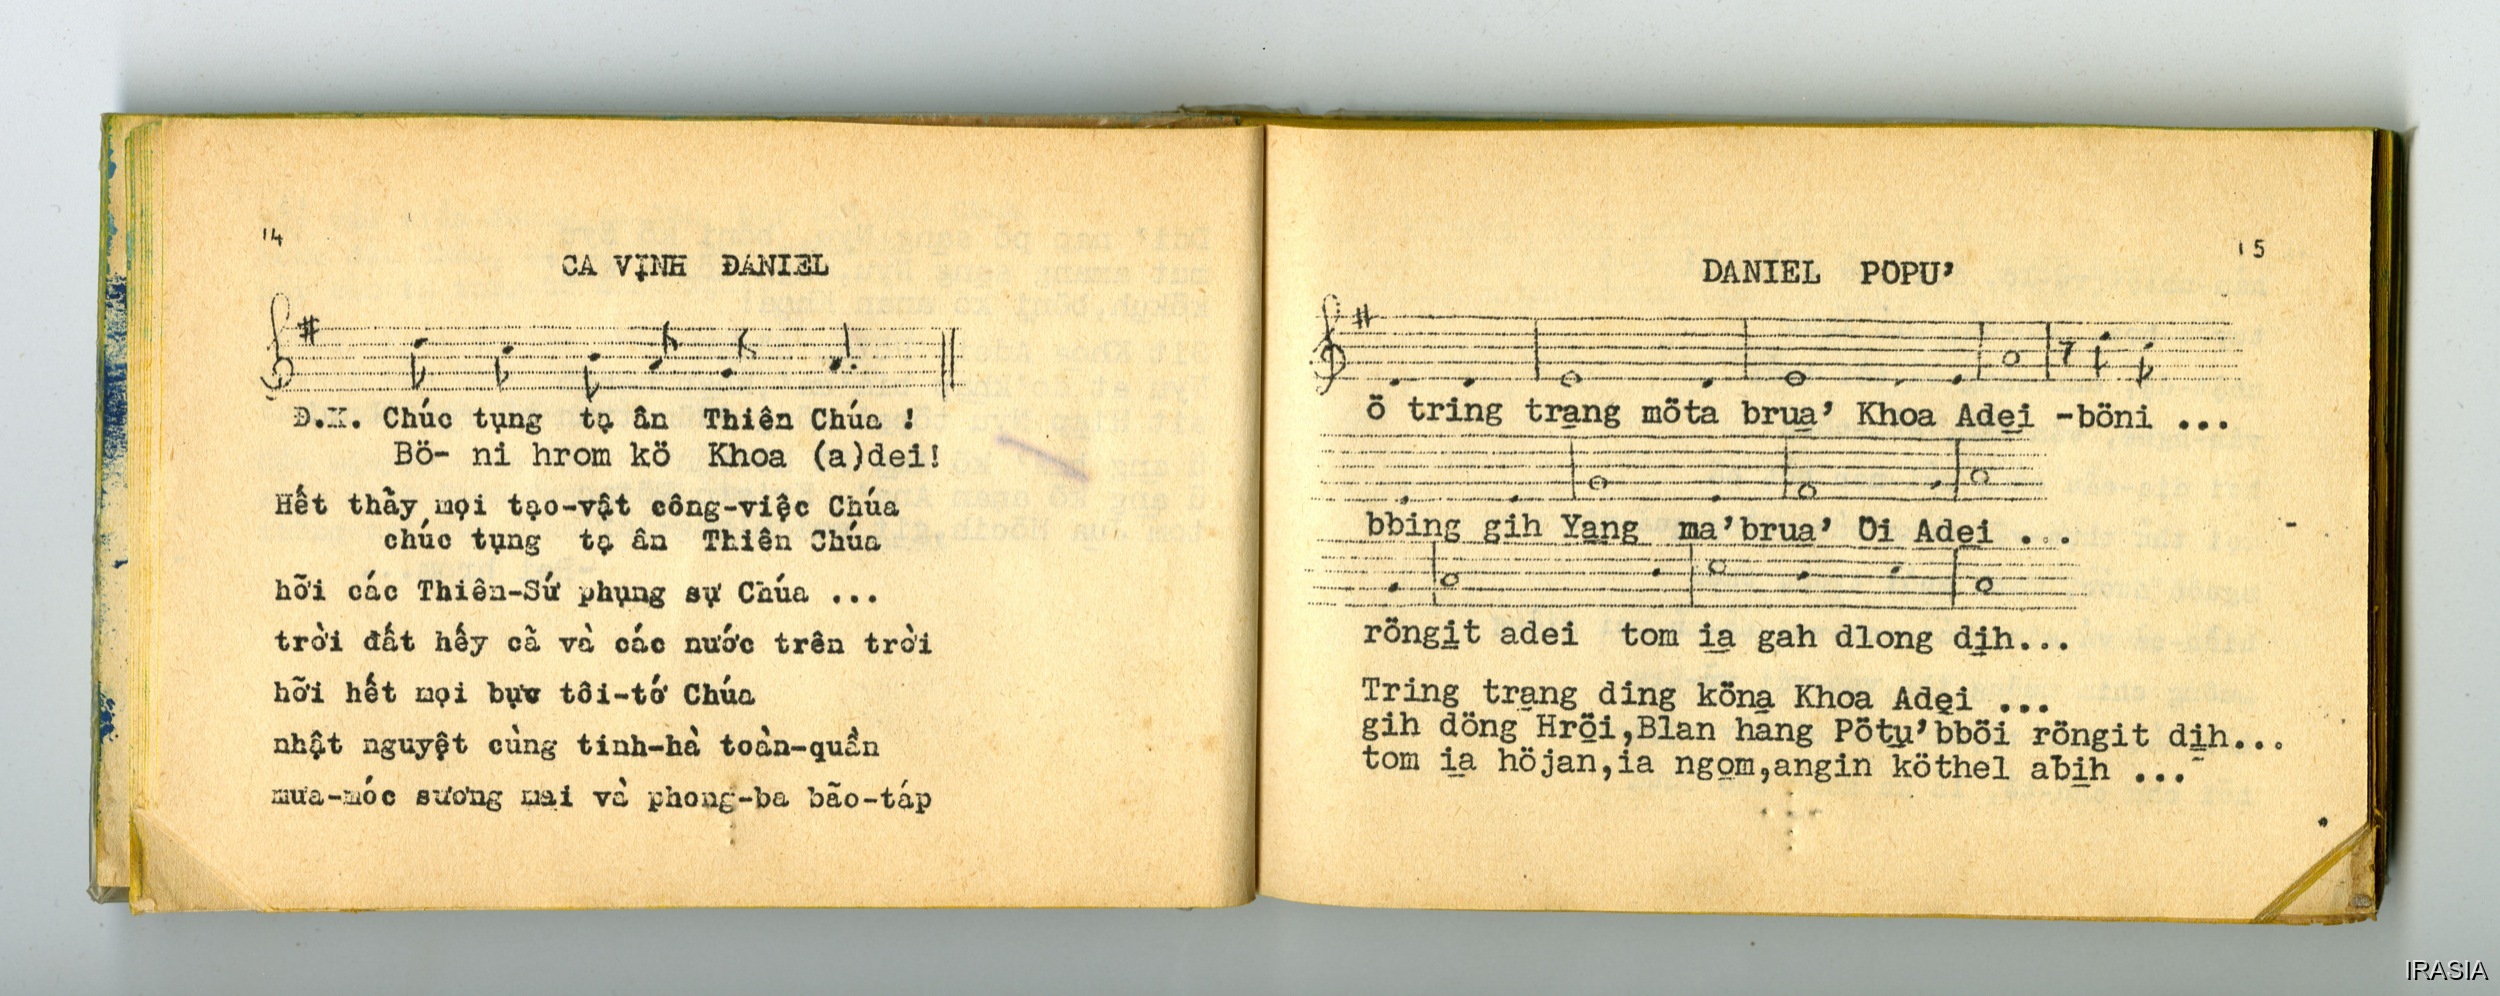 14
CA VỊNH ĐANIEL
Đ.K. Chúc tụng tạ ân Thiên Chúa !
Bö- ni hrom kö Khoa (a)dei!
Hết thảy mọi tạo-vật công-việc Chúa
chúc tụng tạ ân Thiên Chúa
hỡi các Thiên-Sứ phụng sự Chúa ...
trời đất hếy cả và các nước trên trời
hỡi hết mọi bực tôi-tớ Chúa
nhật nguyệt cùng tinh-hà toàn-quần
mưa-móc sương mai và phong-ba bão-táp
15
DANIEL PÖPU'
ö tring tra̱ng möta brua̱' Khoa Ade̱i -böni ...
bbing gih Ya̱ng ma'brua̱' Öi Ade̱i ...
röngi̱t adei tom i̱a gah dlong di̱h...
Tring tra̱ng ding köna̱ Khoa Ade̱i ...
gih döng Hrö̱i,Blan hang Pötu̱'bböi röngit di̱h...
tom i̱a höjan,ia ngo̱m,angin köthel abi̱h ...
IRASIA